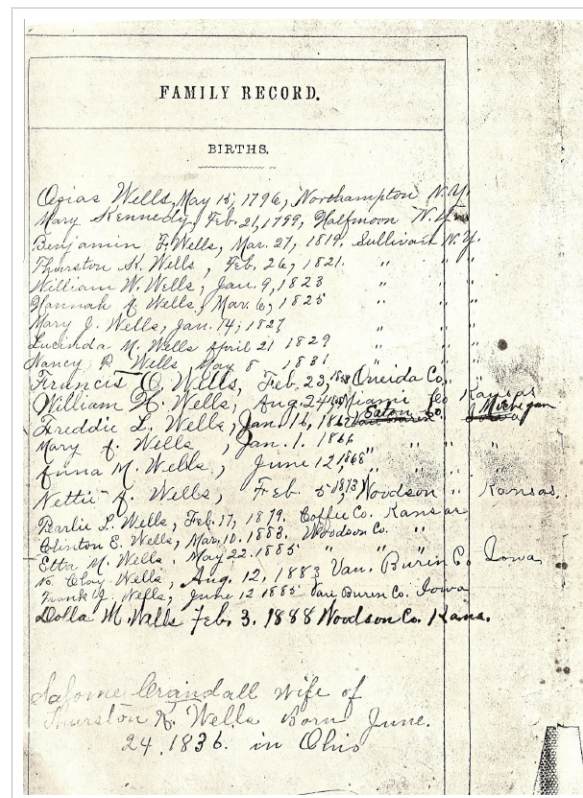 FAMILY RECORD.
BIRTHS.
Osias Wells, May 15, 1796, Northampton N.Y.
Mary Kennedy, Feb. 21, 1799, Halfmoon N.Y.
Benjamin F. Wells, Mar. 27, 1819, Sullivan N.Y.
Thurston K. Wells, Feb. 26, 1821. " " "
William W. Wells, Jan. 9, 1823 " " "
Hannah A Wells, Mar. 6, 1825 " " "
Mary J. Wells, Jan. 14, 1827 " " "
Lucinda M. Wells April 21 1829 " " "
Nancy R Wells May 8 1831 " " "
Francis O. Wells, Feb. 23, Oneida Co.
William H. Wells, Aug. 24, Miami Co Kansas
Freddie L. Wells, Jan. 16, Eaton Co. Michegan
Mary A. Wells, Jan. 1. 1866 " " "
Anna M. Wells, June 12, 1868 " " "
Nettie A. Wells, Feb 5 1873 Woodson " Kansas.
Pearlie L. Wells, Feb. 17, 1879. Coffee Co. Kansas
Clinton E. Wells, Mar. 10. 1883. Woodson Co. "
Etta M. Wells. May 22. 1885 " " "
Clay Wells, Aug. 12. 1883 Van. Buren Co. Iowa
Frank J. Wells, June 12 1885 Van Buren Co. Iowa
Dolla M. Wells Feb. 3. 1888 Woodson Co. Kans.
Salome Crandall wife of
Thurston K. Wells Born June.
24. 1836. in Ohio